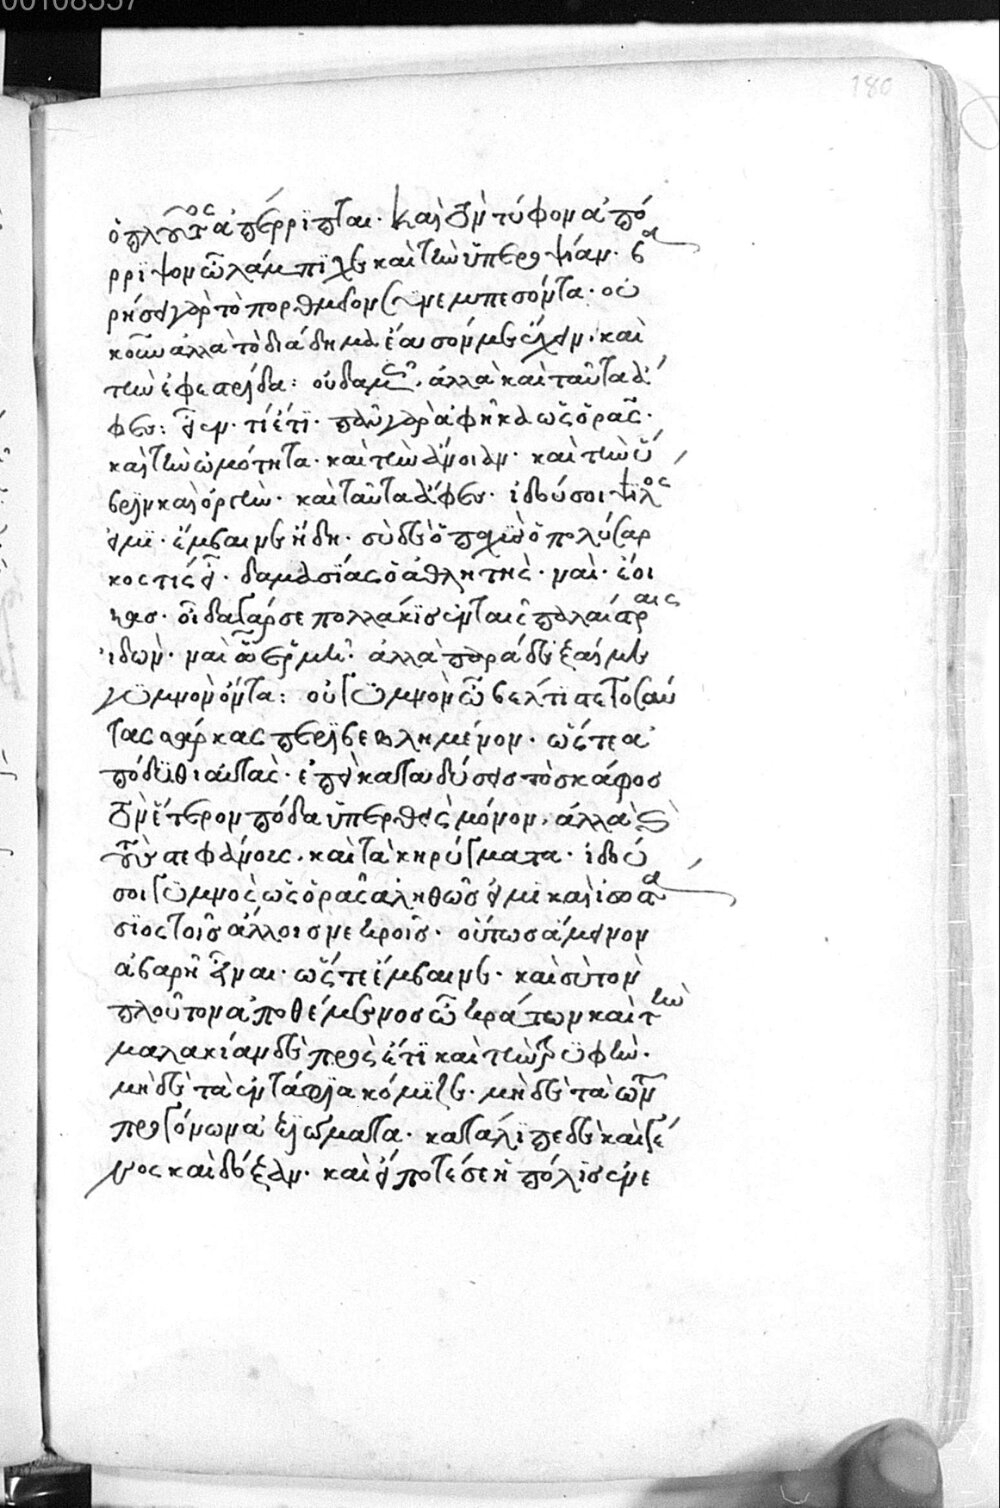 00108337
180
ὁ πλοῦτος ἀπέρριπται. καὶ τὸν τύφον ἀπό
ρριψον ὦ λάμπιχε καὶ τὴν ὑπεροψίαν. βα
ρήσει γὰρ τὸ πορθμεῖον συνεμπεσόντα. οὐ
κοῦν ἀλλὰ τὸ διάδημα ἔασόν με ἔχειν. καὶ
τὴν ἐφεστρίδα: οὐδαμῶς, ἀλλὰ καὶ ταῦτα ἄ
φες: εἶεν. τί ἔτι. πάντα γὰρ ἀφῆκα ὡς ὁρᾷς.
καὶ τὴν ὠμότητα. καὶ τὴν ἄνοιαν. καὶ τὴν ὕ
βριν καὶ ὀργὴν. καὶ ταῦτα ἄφες. ἰδού σοι ψιλός
εἰμι. ἔμβαινε ἤδη. σὺ δὲ ὁ παχὺς ὁ πολύσαρ
κος τίς εἶ. δαμασίας ὁ ἀθλητής. ναὶ. ἔοι
κας. οἶδα γάρ σε πολλάκις ἐν ταῖς παλαίστραις
ἰδών. ναὶ ὦ ἑρμῆ. ἀλλὰ παράδεξαί με
γυμνὸν ὄντα: οὐ γυμνὸν ὦ βέλτιστε τοσαύ
τας σάρκας περιβεβλημένον. ὥστε ἀ
πόδυθι αὐτάς. ἐπεὶ καταδύσεις τὸ σκάφος
τὸν ἕτερον πόδα ὑπερθεὶς μόνον. ἀλλὰ καὶ
τοὺς στεφάνους. καὶ τὰ κηρύγματα. ἰδού
σοι γυμνὸς ὡς ὁρᾷς ἀληθῶς εἰμι καὶ ἰσοστά
σιος τοῖς ἄλλοις νεκροῖς. οὕτως ἄμεινον
ἀβαρῆ εἶναι. ὥστε ἔμβαινε. καὶ σὺ τὸν
πλοῦτον ἀποθέμενος ὦ κράτων καὶ τὴν
μαλακίαν δὲ πρὸς ἔτι καὶ τὴν τρυφὴν.
μηδὲ τὰ ἐντάφια κόμιζε. μηδὲ τὰ τῶν
προγόνων ἀξιώματα. κατάλιπε δὲ καὶ γέ
νος καὶ δόξαν. καὶ εἴ ποτέ σε ἡ πόλις ἀνε